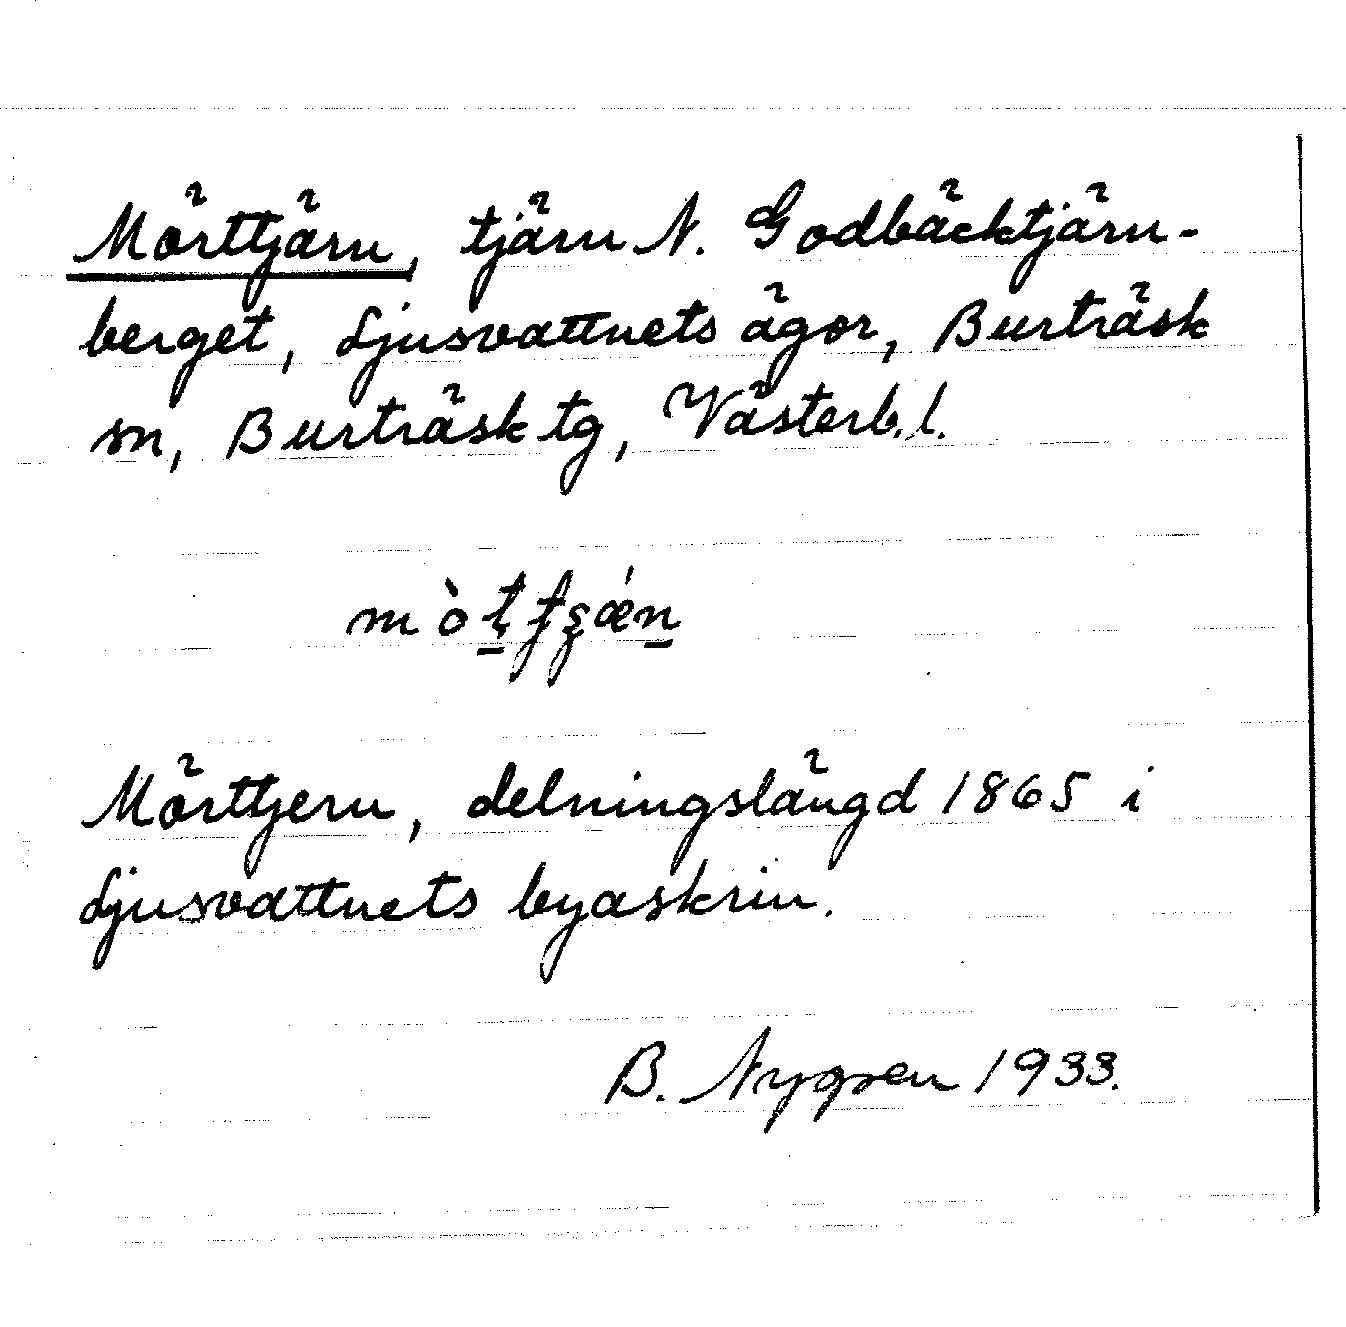 Mörttjärn, tjärn N. Godbäcktjärn-
berget, Ljusvattnets ägor, Burträsk
sn, Burträsk tg, Västerb.l.
Mörttjern, delningslängd 1865 i
Ljusvattnets byaskrin.
B. Nygren 1933.